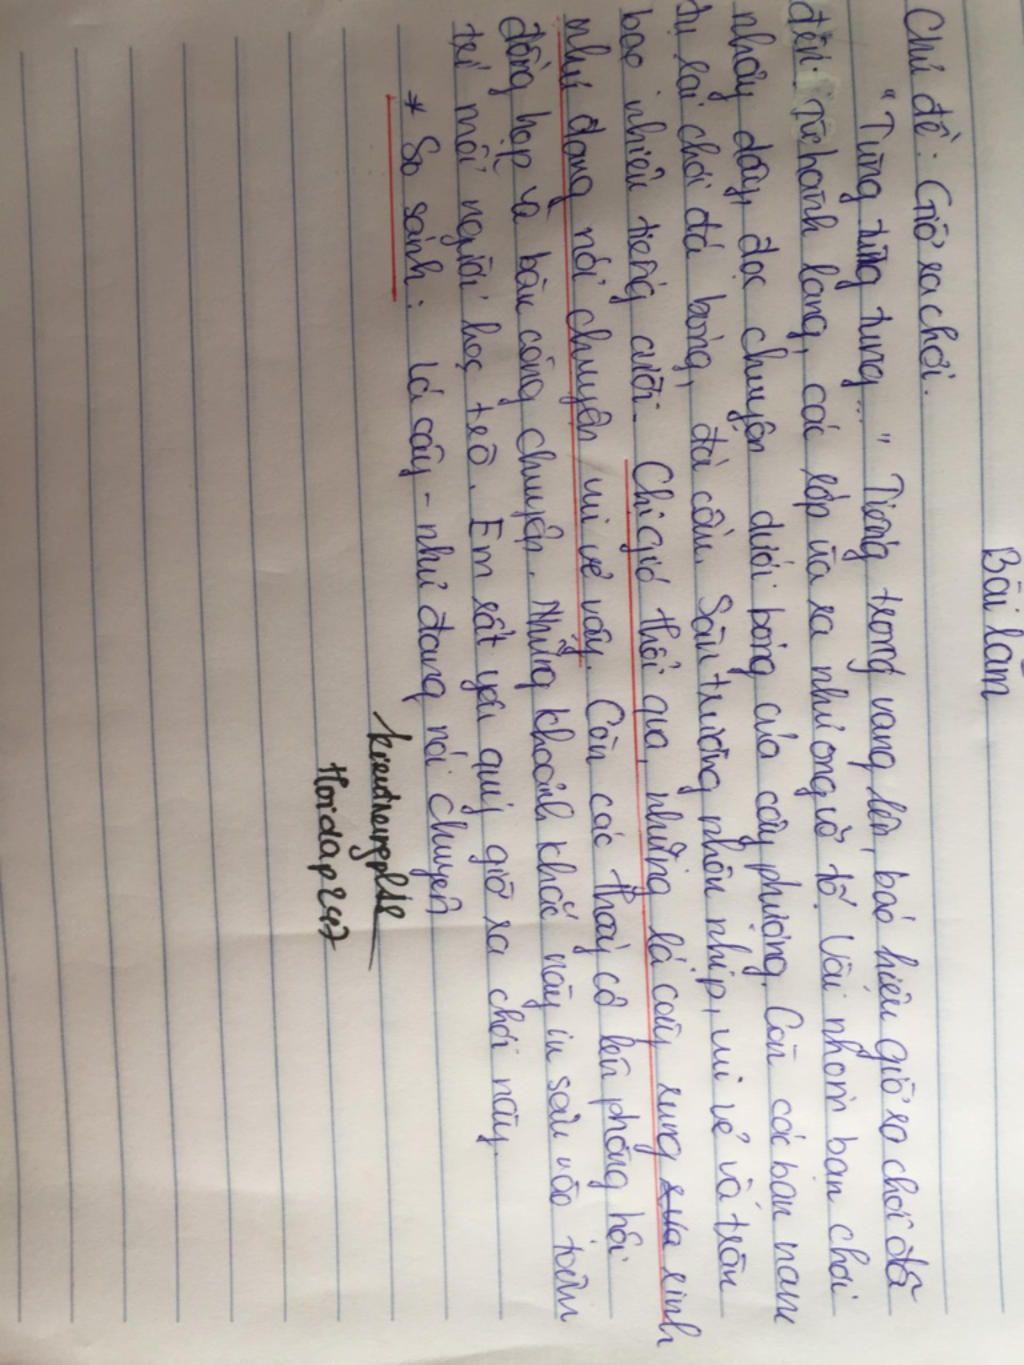 Bài làm
Chủ đề: Giờ ra chơi.
"Tùng tùng tùng..." Tiếng trống vang lên, báo hiệu giờ ra chơi đã
đến. Từ hành lang, các lớp ùa ra như ong vỡ tổ. Vài nhóm bạn chơi
nhảy dây, đọc chuyện dưới bóng của cây phượng. Còn các bạn nam
tụ lại chơi đá bóng, đá cầu. Sân trường nhộn nhịp, vui vẻ và tràn
bao nhiêu tiếng cười. Chị gió thổi qua, những lá cây rung rinh
như đang nói chuyện vui vẻ vậy. Còn các thầy cô lên phòng hội
đồng họp và bàn công chuyện. Những khoảnh khắc này in sâu vào tâm
trí mỗi người học trò. Em rất yêu quý giờ ra chơi này.
* So sánh: lá cây - như đang nói chuyện
Hoidap247